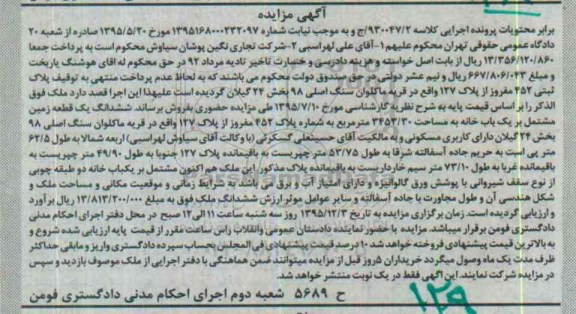 آگهی مزایده
برابر محتویات پرونده اجرایی کلاسه ۹۳۰۰۴۷/۲/ج و به موجب نیابت شماره ۱۳۹۵۱۶۸۰۰۰۲۳۲۰۹۷ مورخ ۱۳۹۵/۵/۲۰ صادره از شعبه ۲۰
دادگاه عمومی حقوقی تهران محکوم علیهم ۱-آقای علی لهراسبی ۲-شرکت تجاری نگین پوشان سیاوش محکوم است به پرداخت جمعا
۱۳/۳۵۶/۱۲۰/۸۶۰ ریال از بابت اصل خواسته و هزینه دادرسی و خسارت تاخیر تادیه مرداد ۹۲ در حق محکوم له آقای هوشنگ باربخت
و مبلغ ۶۶۷/۸۰۶/۰۴۳ ریال و نیم عشر دولتی در حق صندوق دولت محکوم می باشند که به لحاظ عدم پرداخت منتهی به توقیف پلاک
ثبتی ۴۵۲ مفروز از پلاک ۱۲۷ واقع در قریه ماکلوان سنگ اصلی ۹۸ بخش ۲۴ گیلان گردیده است علیهذا این اجرا قصد دارد ملک فوق
الذکر را بر اساس قیمت پایه به شرح نظریه کارشناسی مورخ ۱۳۹۵/۷/۱۰ طی مزایده حضوری بفروش برساند. ششدانگ یک قطعه زمین
مشتمل بر یک باب خانه به مساحت ۳۴۵۳/۳۰ مترمربع به شماره پلاک ۴۵۲ مفروز از پلاک ۱۲۷ واقع در قریه ماکلوان سنگ اصلی ۹۸
بخش ۲۴ گیلان دارای کاربری مسکونی و به مالکیت آقای حسینعلی گسکرئی (با وکالت آقای سیاوش لهراسبی) اربعه شمالا به طول ۶۲/۵
متر پی است به حریم جاده آسفالته شرقا به طول ۵۲/۷۵ متر چپریست به باقیمانده پلاک ۱۲۷ جنوبا به طول ۴۹/۹۰ متر چپریست به
باقیمانده غربا به طول ۷۳/۱۰ متر سیم خارداریست به باقیمانده پلاک مذکور. این ملک هم اکنون مشتمل بر یکباب خانه دو طبقه چوبی
از نوع سقف شیروانی با پوشش ورق گالوانیزه و دارای امتیاز آب و برق می باشد به شرایط زمانی و موقعیت مکانی و مساحت ملک و
شکل هندسی آن و طول مجاورت با جاده آسفالته و سایر عوامل موثر ارزش ششدانگ ملک فوق به مبلغ ۱۳/۸۱۳/۲۰۰/۰۰۰ ریال برآورد
و ارزیابی گردیده است. زمان برگزاری مزایده به تاریخ ۱۳۹۵/۱۲/۳ روز سه شنبه ساعت ۱۱ الی ۱۲ صبح در محل دفتر اجرای احکام مدنی
دادگستری فومن برقرار میباشد. مزایده با حضور نماینده دادستان عمومی وانقلاب راس ساعت مقرر از قیمت پایه ارزیابی شده شروع و
به بالاترین قیمت پیشنهادی فروخته خواهد شد ۱۰ درصد قیمت پیشنهادی فی المجلس بحساب سپرده دادگستری واریز و مابقی حداکثر
ظرف مدت یک ماه وصول میگردد خریداران ۵ روز قبل از مزایده میتوانند ضمن هماهنگی با دفتر اجرایی از ملک موصوف بازدید و سپس
در مزایده شرکت نمایند. این آگهی فقط در یک نوبت منتشر خواهد شد.
ح ۵۶۸۹ شعبه دوم اجرای احکام مدنی دادگستری فومن
۱۲۹